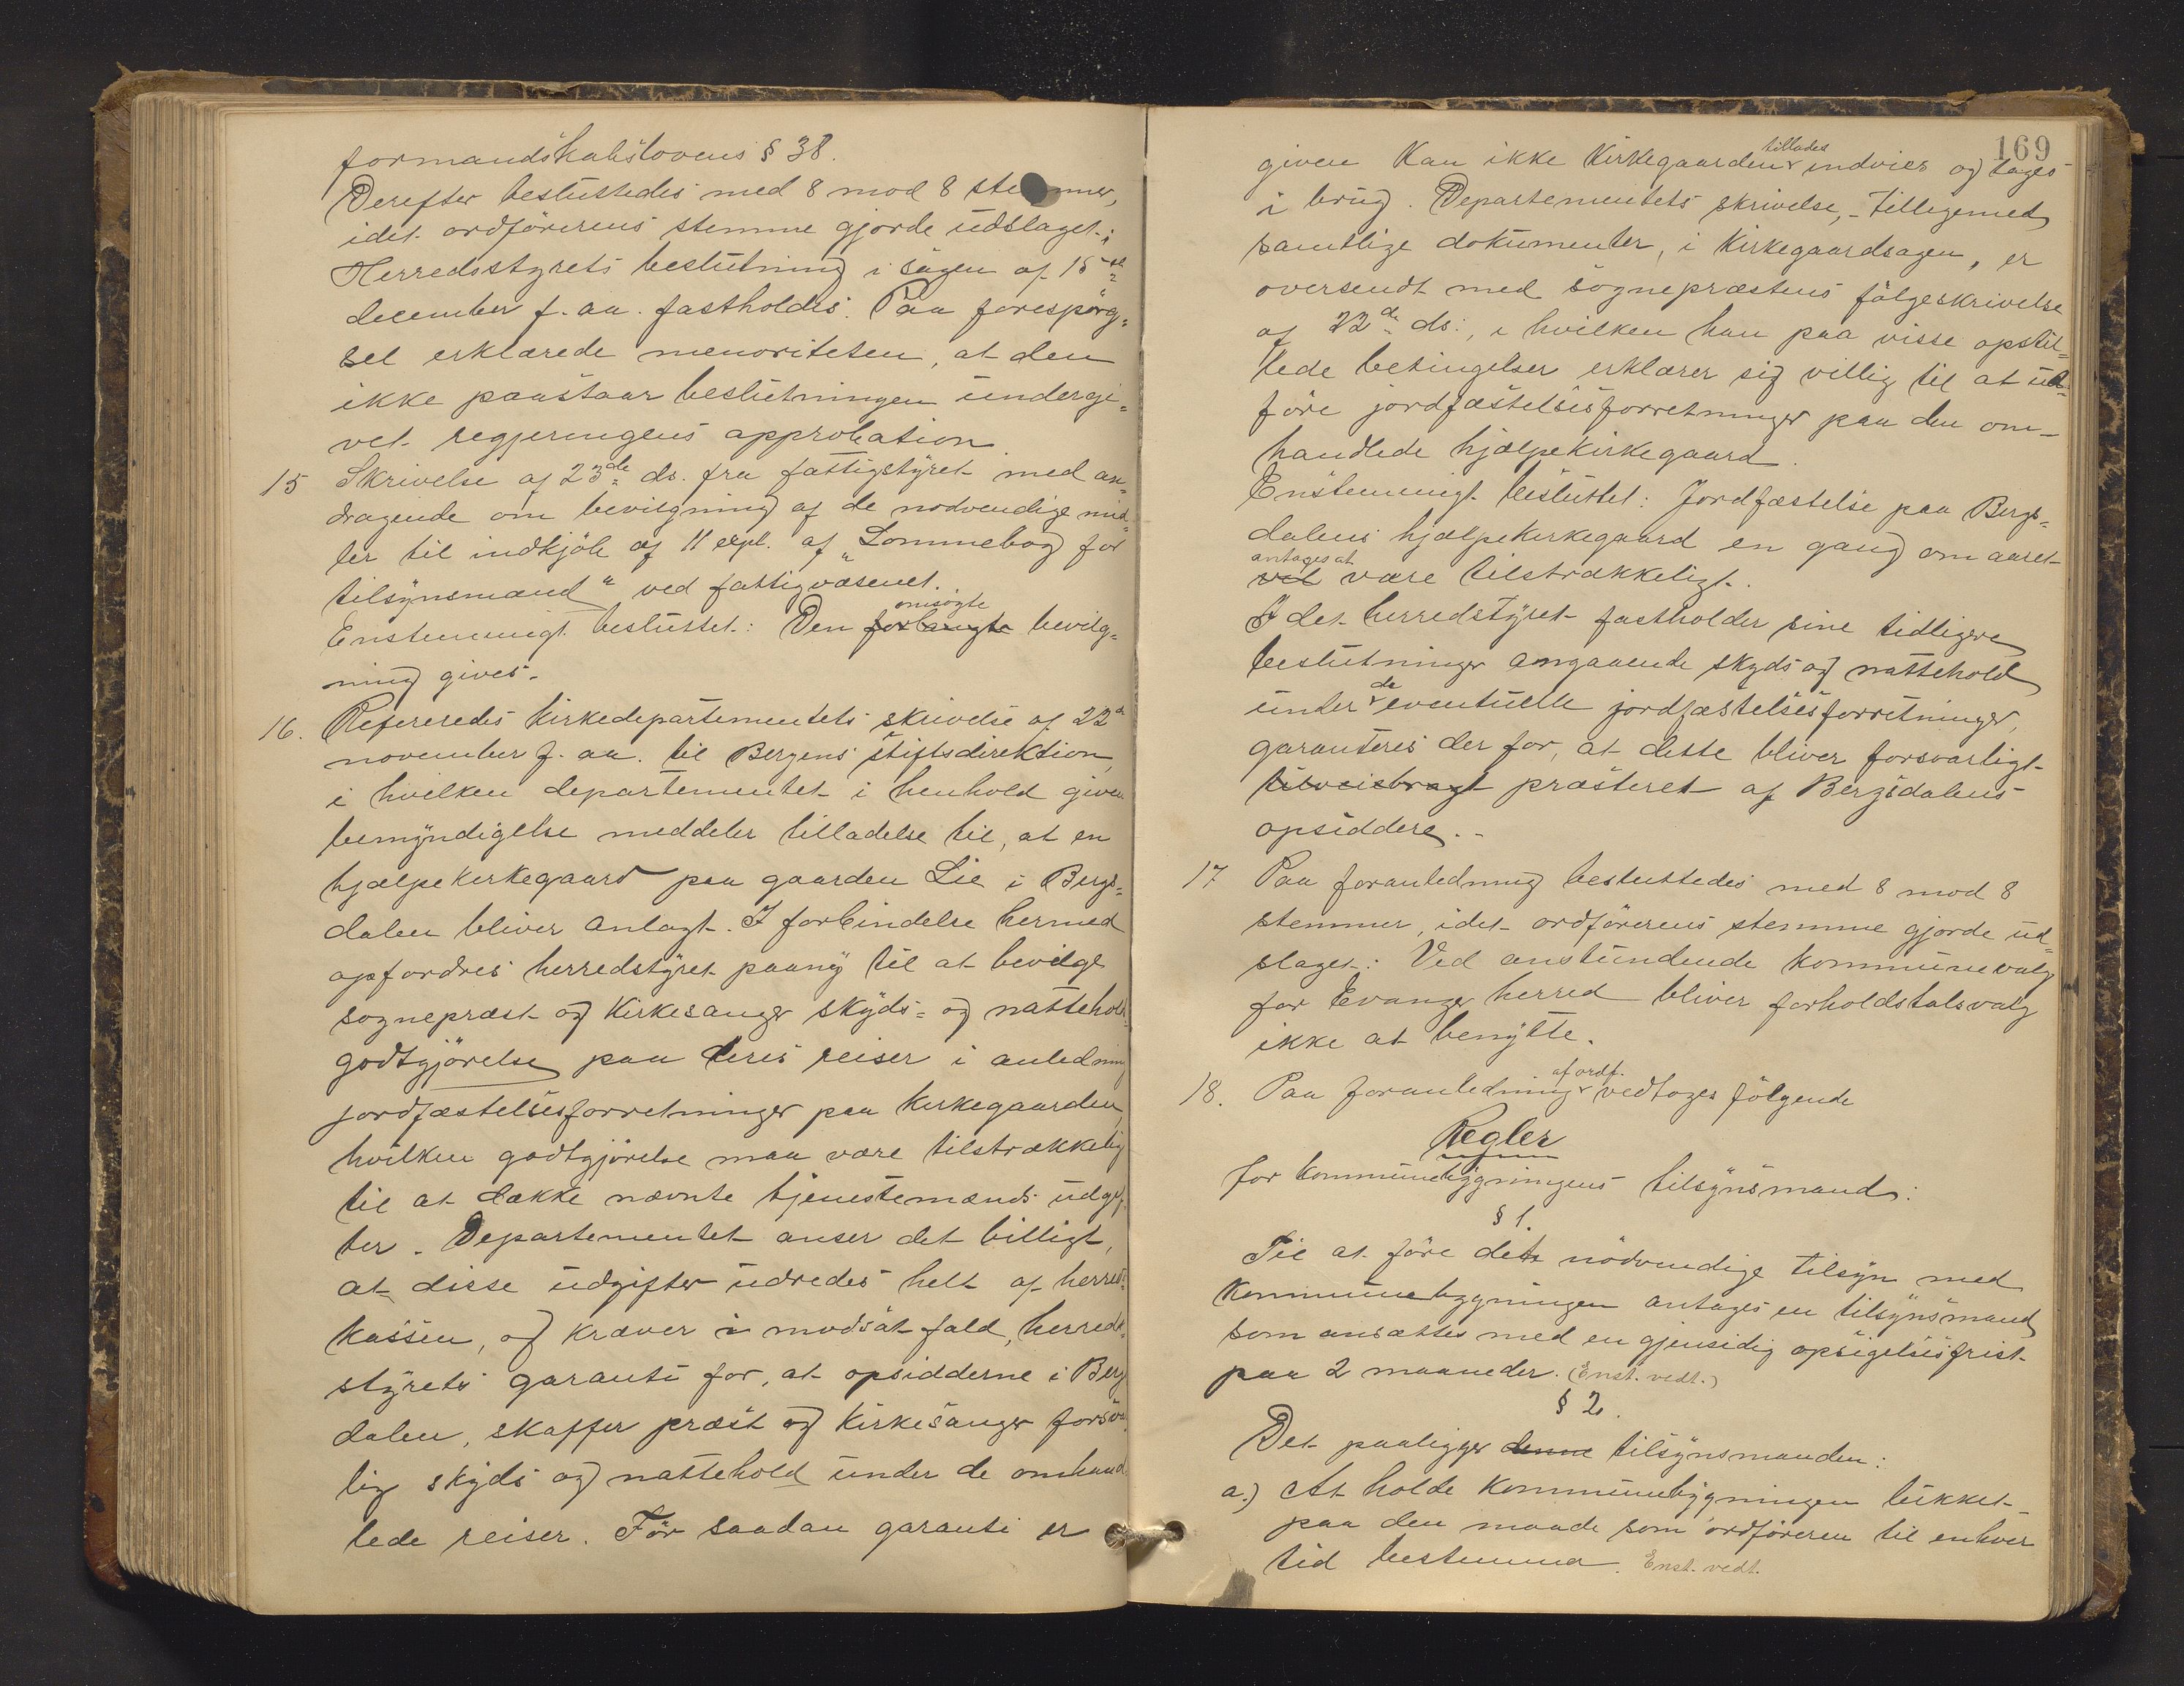 formandskabslovens § 38.
Derefter besluttedes med 8 mod 8 stemmer,
idet ordförerens stemme gjorde udslaget:
Herredsstyrets beslutning i sagen af 15de
december f. aa. fastholdes. Paa forespörg=
sel erklærede menoriteten, at den
ikke paastaar beslutningen undergi=
vet regjeringens approbation
15 Skrivelse af 23de ds. fra fattigstyret med an=
dragende om bevilgning af de nodvendige mid=
ler til indkjöb af 11 expl. af „Lommebog for
tilsynsmænd“ ved fattigvæsenet.
Enstemmigt besluttet: Den forlangte omsögte bevilg=
ning gives.
16. Refereredes kirkedepartementets skrivelse af 22de
november f. aa. til Bergens stiftsdirektion,
i hvilken departementet i henhold given
bemyndigelse meddeler tilladelse til, at en
hjælpekirkegaard paa gaarden Lie i Bergs=
dalen bliver anlagt. I forbindelse hermed
opfordres herredstyret paany til at bevilge
sognepræst og Kirkesanger skyds= og nattehold=
godtgjörelse paa deres reiser i anledning
jordfæstelsesforretninger paa kirkegaarden,
hvilken godtgjörelse maa være tilstrækkelig
til at dække nævnte tjenestemænds udgif=
ter. Departementet anser det billigt,
at disse udgifter udredes helt af herreds=
kassen, og kræver i modsat fald, herreds=
styrets garanti for, at opsidderne i Berg
dalen, skaffer præst og Kirkesanger forsvar
lig skyds og nattehold under de omhand
lede reiser. För saadan garanti er
169
given kan ikke Kirkegaarden tillades indvies og tages
i brug. Departementets skrivelse, tilligemed
samtlige dokumenter, i Kirkegaardsagen, er
oversendt med sognepræstens fölgeskrivelse
af 22de ds., i hvilken han paa visse opstil=
lede betingelser erklærer sig villig til at ud=
före jordfæstelsesforretninger paa den om-
handlede hjælpekirkegaard.
Enstemmigt besluttet: Jordfæstelse paa Bergs=
dalens hjælpekirkegaard en gang om aaret
vil antages at være tilstrækkeligt.
I det herredstyret fastholder sine tidligere
beslutninger angaaende skyds og nattehold
under de eventuelle jordfæstelsesforretninger,
garanteres der for, at dette bliver forsvarligt
tilveiebragt præsteret af Bergsdalens
opsiddere.
17 Paa foranledning besluttedes med 8 mod 8
stemmer, idet ordförerens stemme gjorde ud=
slaget: Ved anstundende kommunevalg
for Evanger herred bliver forholdstalsvalg
ikke at benytte.
18. Paa foranledning af ordf. vedtoges fölgende
Regler
for kommunebygningens tilsynsmand:
§ 1.
Til at före det nödvendige tilsyn med
Kommunebygningen antages en tilsynsmand
som ansættes med en gjensidig opsigelsesfrist
paa 2 maaneder. (Enst. vedt.)
§ 2.
Det paaligger denne tilsynsmanden:
a.) At holde Kommunebygningen lukket
paa den maade som ordföreren til enhver
tid bestemmer. Enst. vedt.